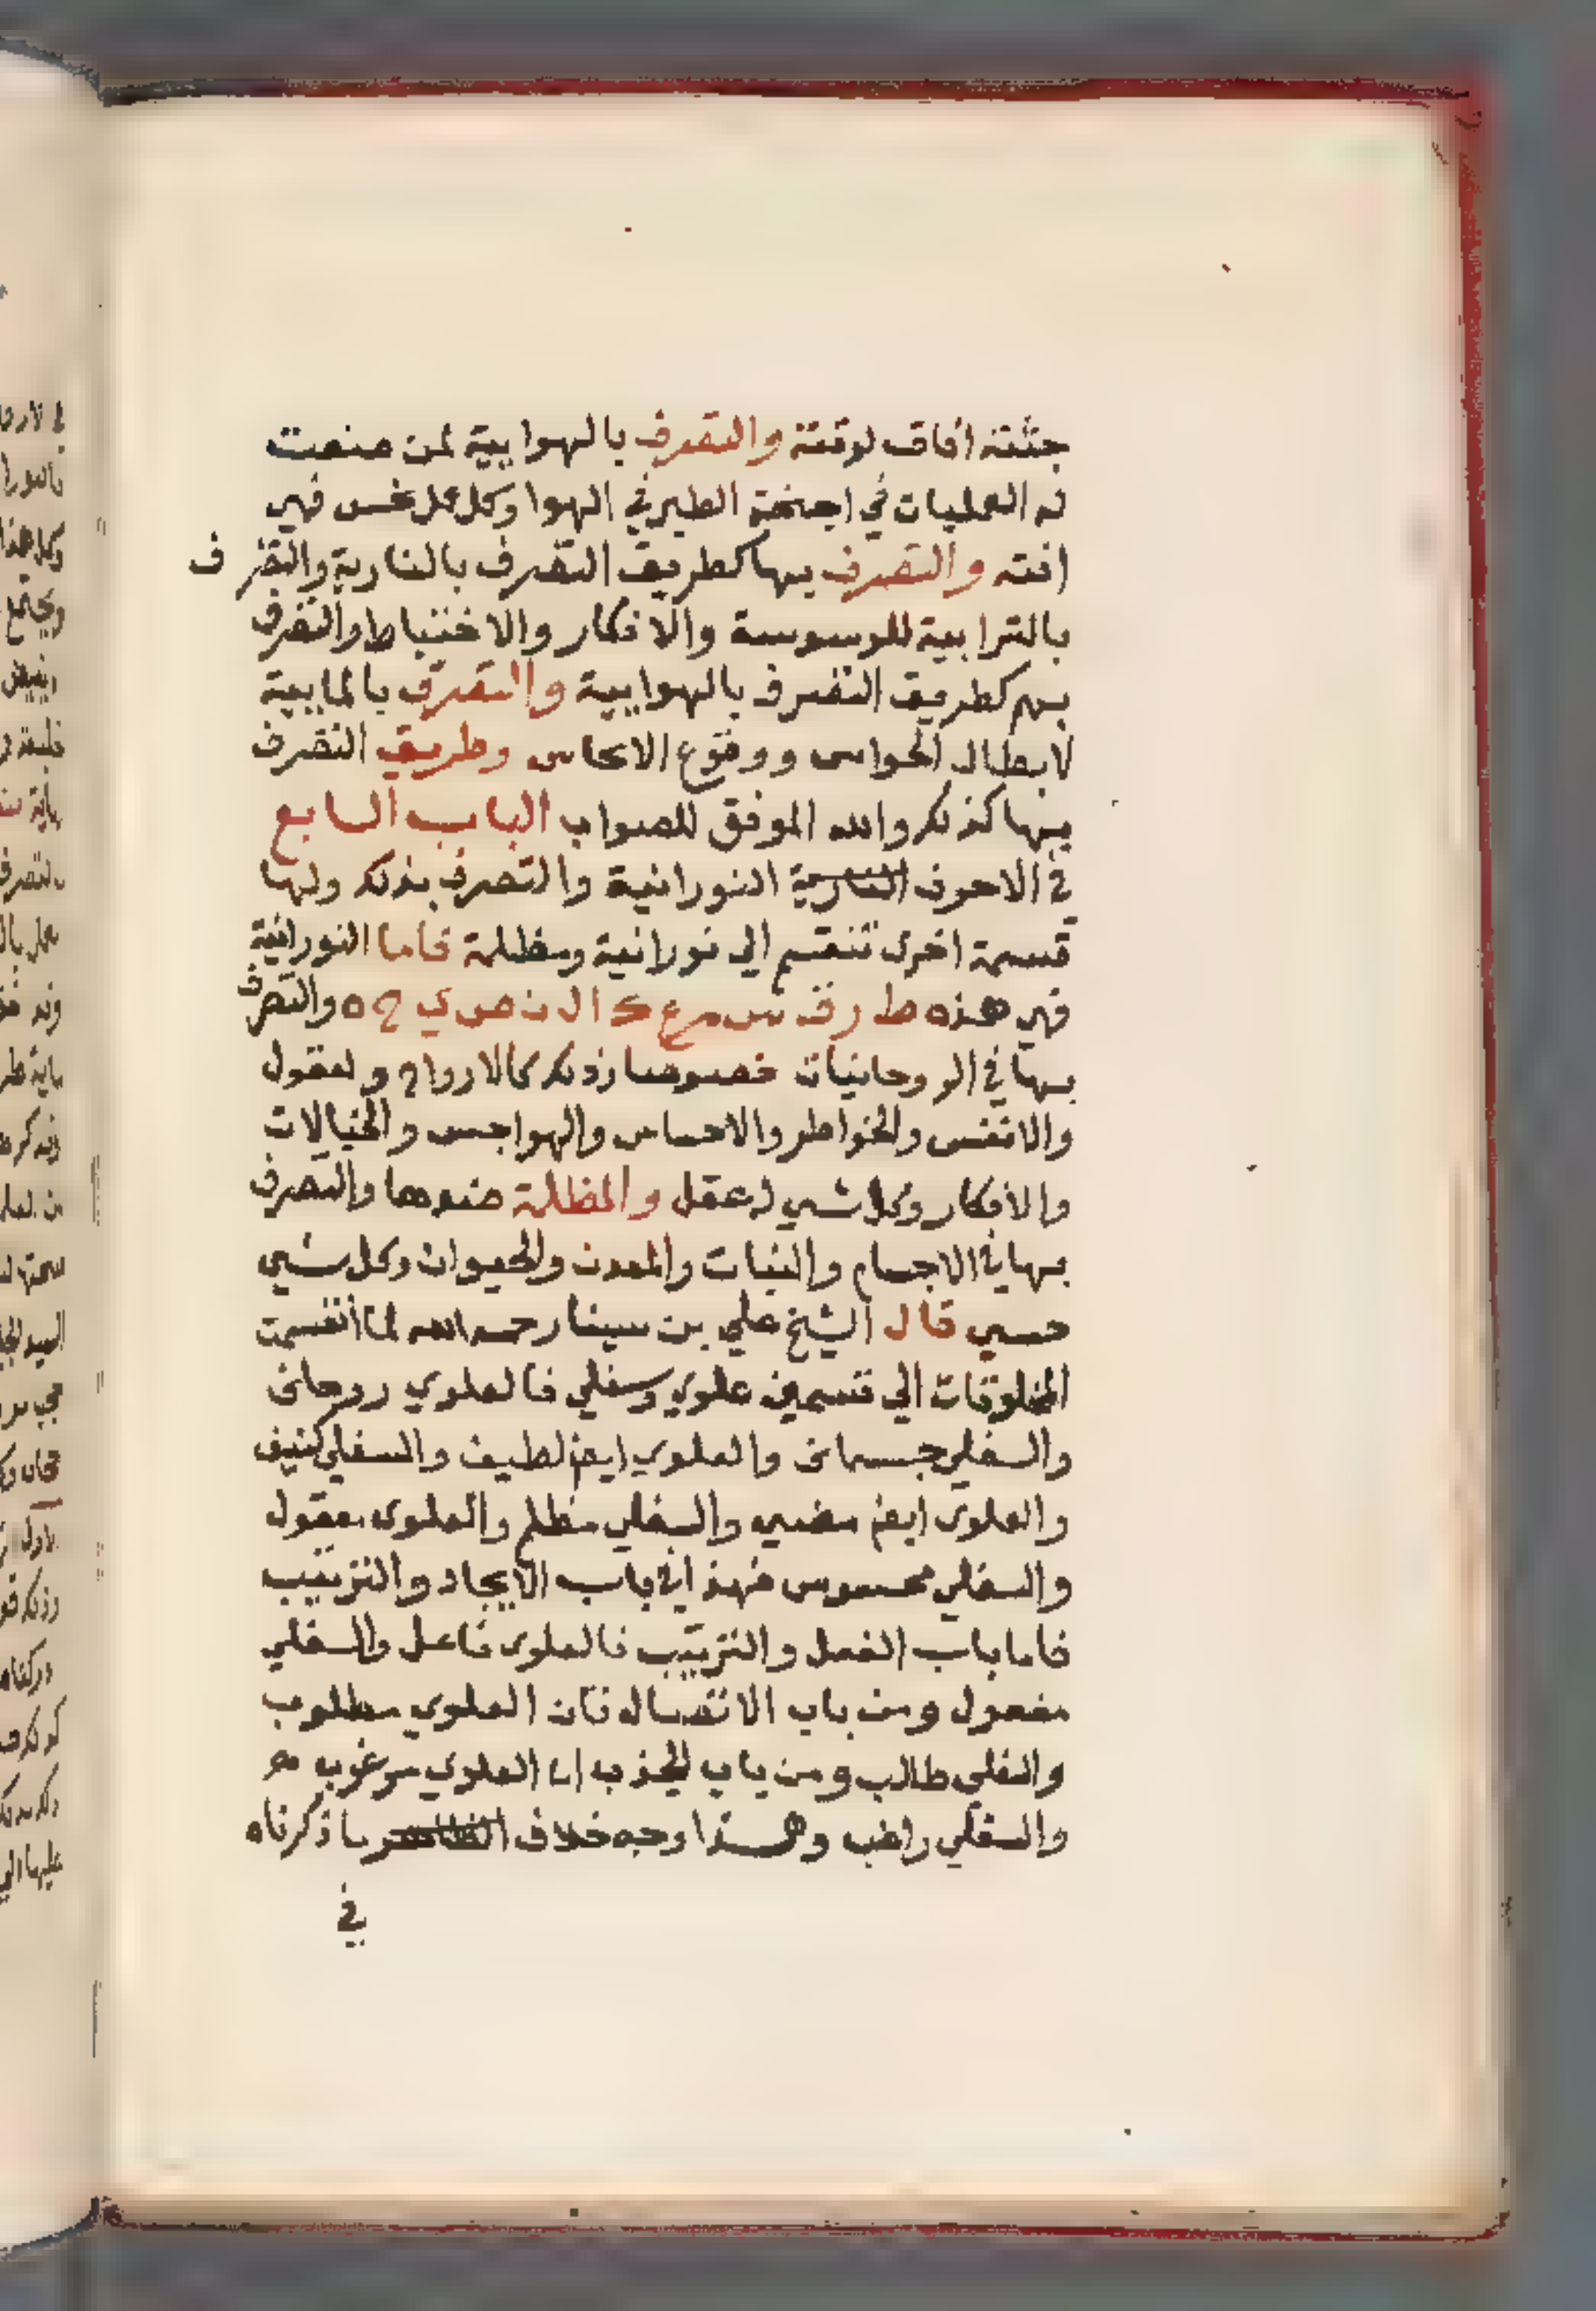 جثته افاق لوقته والتصرف بالهوايية لمن صنعت
له العمليات في اجنحة الطير في الهوا وكل عمل نحس فهي
افته والتصرف بها كطريق التصرف بالنارية والتصرف
بالترابية للوسوسة والافكار والاختباط والتصرف
بهم كطريق التصرف بالهوايية والتصرف بالمايية
لابطال الحواس ووقوع الانحاس وطريق التصرف
بها كذلك والله الموفق للصواب الباب السابع
في الاحرف النورانية والتصرف بذلك ولها
قسمة اخرى تنقسم الي نورانية ومظلمة فاما النورانية
فهي هذه ط ر ق س م ع ك ا ل ن ص ي ح ه والتصرف
بها في الروحانيات خصوصا وذلك كالارواح ولعقول
والانفس والخواطر والاحساس والهواجس والخيالات
والافكار وكل شي له عقل والمظلمة ضدها والتصرف
بها في الاجسام والنبات والمعدن والحيوان وكل شي
حسي قال الشيخ علي بن سينا رحمه الله لما انقسمت
المخلوقات الي قسمين علوي وسفلي فالعلوي روحانى
والسفلي جسمانى والعلوي ايض لطيف والسفلي كثيف
والعلوى ايض مضي والسفلي مظلم والعلوى معقول
والسفلي محسوس فهذا في باب الايجاد والترتيب
فاما باب الفعل والترتيب فالعلوى فاعل والسفلي
مفعول ومن باب الاتصال فان العلوي مطلوب
والسفلي طالب ومن باب الجذب ان العلوي مرغوب
والسفلي راغب وهذا وجه خلاف ما ذكرناه
في